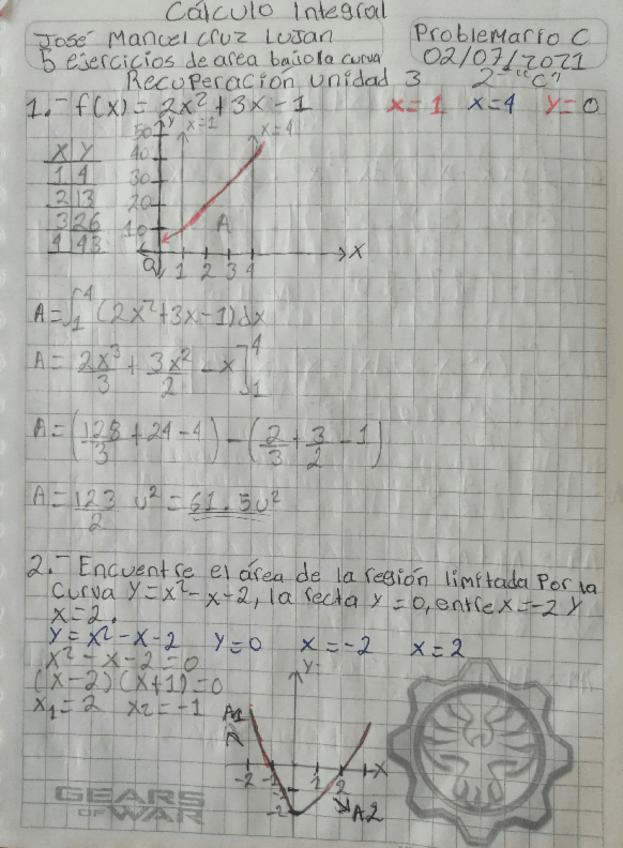 Cálculo Integral
José Manuel Cruz Lujan
Problemario C
5 ejercicios de area bajo la curva
02/07/2021
Recuperación unidad 3
2-"C"
1.- f(x) = 2x² + 3x - 1 x=1 x=4 y=0
X Y
1 4
2 13
3 26
4 43
y
x=1
x=4
50
40
30
20
10
0
1 2 3 4
X
A
A=∫₁⁴ (2x²+3x-1)dx
A= 2x³/3 + 3x²/2 - x]₁⁴
A=(128/3 + 24 - 4) - (2/3 + 3/2 - 1)
A= 123/2 u² = 61.5u²
2.- Encuentre el área de la región limitada Por la
curva Y=x²-x-2, la recta y=0, entre x=-2 y
x=2.
y=x²-x-2 y=0 x=-2 x=2
x²-x-2=0
(x-2)(x+1)=0
x₁=2 x₂=-1
A1
y
-2 -1 1 2
X
-1
-2
A2
GEARS
OF WAR